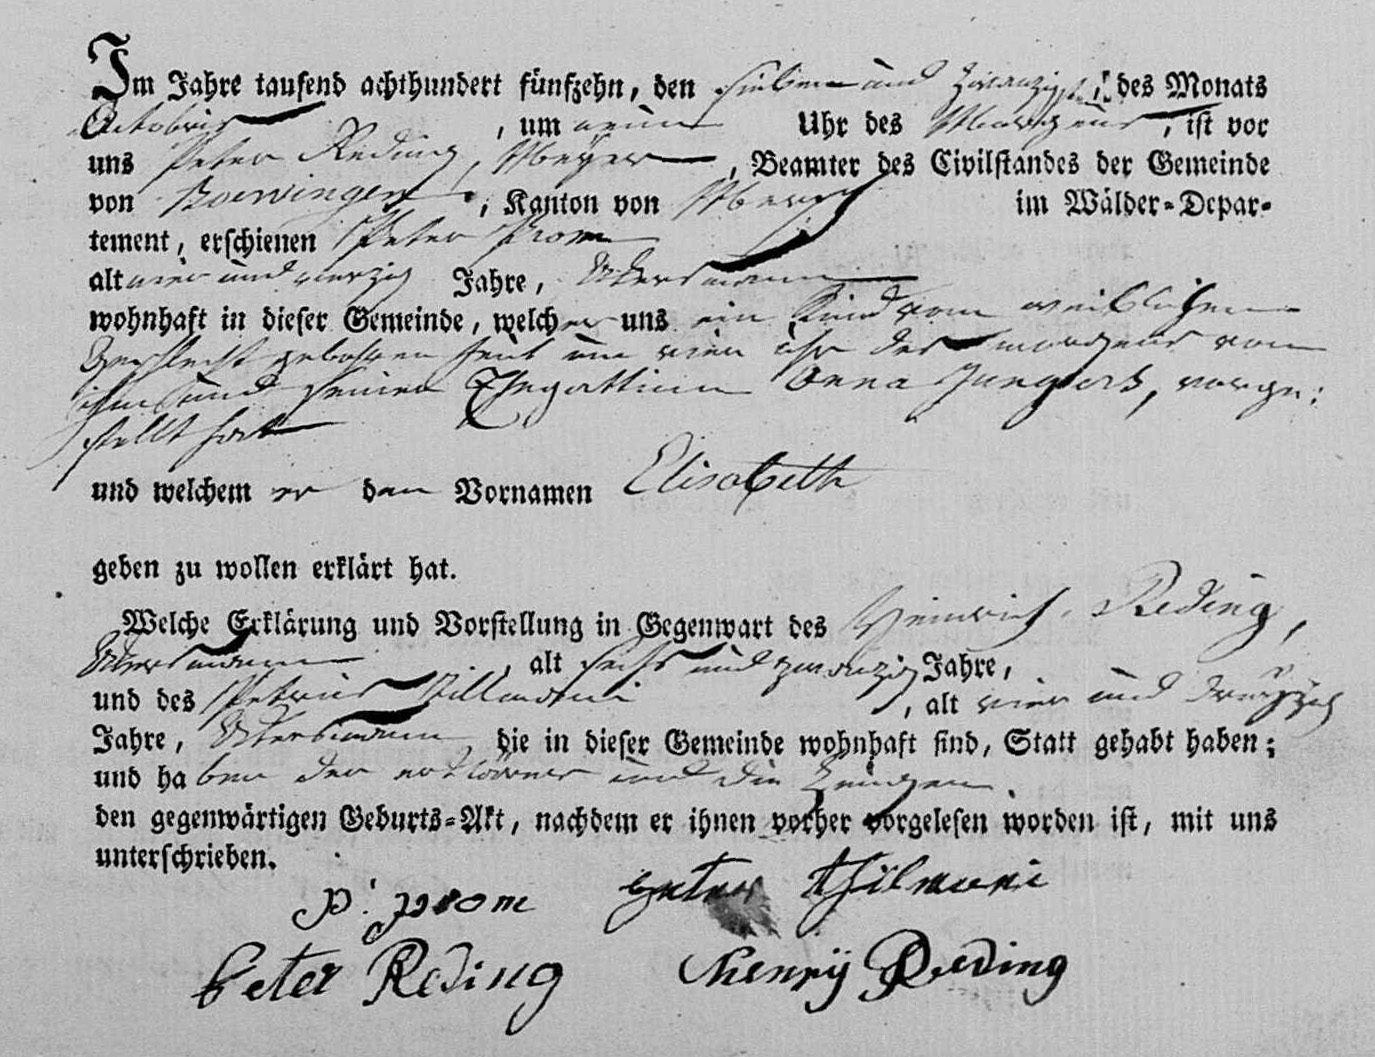 Im Jahre tausend achthundert fünfzehn, den sieben und zwanzigsten, des Monats
Octobris, um neun Uhr des Morgens, ist vor
uns Peter Reding, Meyer, Beamter des Civilstandes der Gemeinde
von Boevingen, Kanton von Mersch im Wälder-Depar-
tement, erschienen Peter Prom
alt vier und vierzig Jahre, Akersmann
wohnhaft in dieser Gemeinde, welcher uns ein Kind vom weiblichen
Geschlecht gebohren heut um vier uhr des morgens von
ihm und seiner Ehegattinn Anna Jungers, vorge:
stellt hat
und welchem er den Vornamen Elisabeth
geben zu wollen erklärt hat.
Welche Erklärung und Vorstellung in Gegenwart des Heinrich Reding,
Akersmann, alt sechs und zwanzig Jahre,
und des Petrus Tillmani, alt vier und dreyßig
Jahre, Akersmann die in dieser Gemeinde wohnhaft sind, Statt gehabt haben;
und haben der erklärer und die Zeugen
den gegenwärtigen Geburts-Akt, nachdem er ihnen vorher vorgelesen worden ist, mit uns
unterschrieben.
P. prom Peter thilmani
Peter Reding Henrÿ Reding